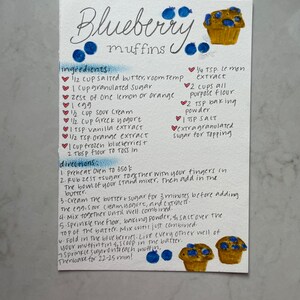 Blueberry
muffins
ingredients:
1/2 cup salted butter room temp
1 cup granulated sugar
zest of one lemon or orange
1 egg
1/2 cup sour cream
1/2 cup Greek yogurt
1 tsp vanilla extract
1/2 tsp orange extract
1 cup frozen blueberries
2 tbsp flour to toss in
1/4 tsp lemon
extract
2 cups all
purpose flour
2 tsp baking
powder
1 tsp salt
extra granulated
sugar for topping
directions:
1. preheat oven to 350°
2. Rub zest + sugar together with your fingers in
the bowl of your stand mixer. Then add in the
butter.
3. Cream the butter + sugar for 2 minutes before adding
the egg, sour cream, yogurt, and extracts.
4. Mix together until well combined.
5. Sprinkle the flour, baking powder, + salt over the
top of the batter. Mix until just combined.
6. Fold in the blueberries. Line every other well of
your muffin tin + scoop in the batter.
7. Sprinkle sugar on each muffin.
Then bake for 22-25 min!